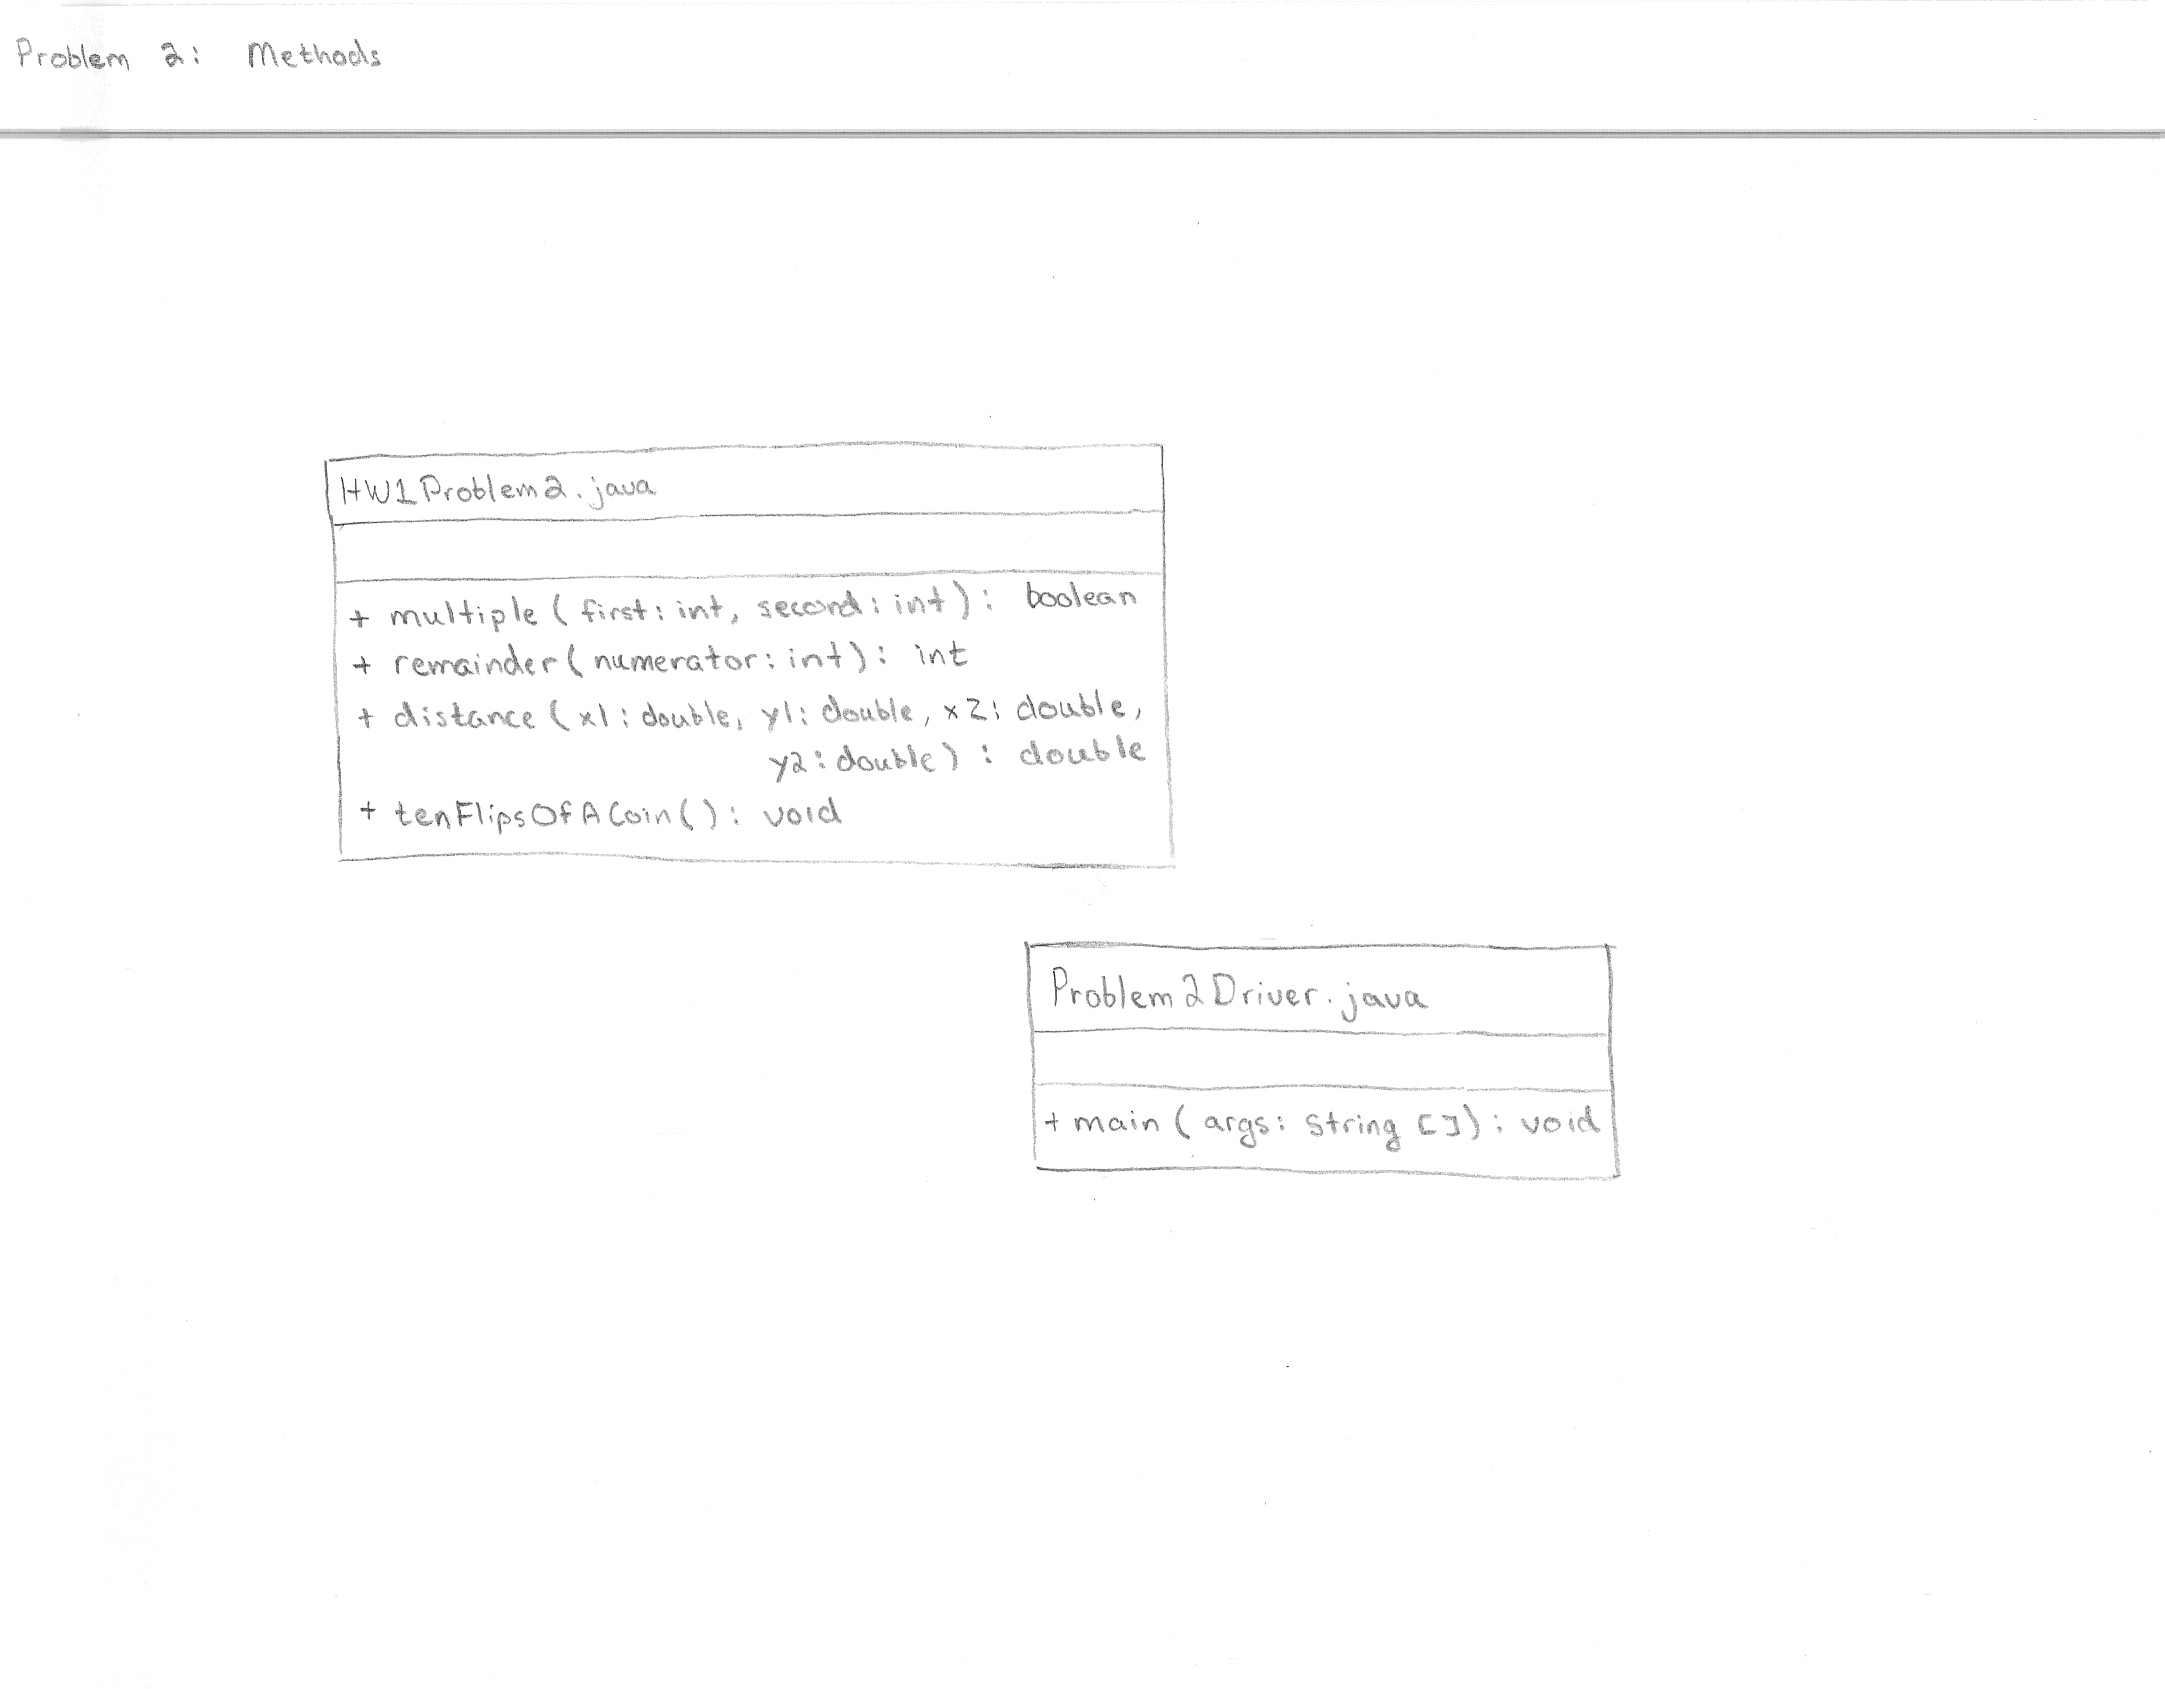 Problem 2: Methods
HW1Problem2.java
+ multiple (first: int, second: int): boolean
+ remainder (numerator: int): int
+ distance (x1: double, y1: double, x2: double,
y2: double): double
+ tenFlipsOfACoin(): void
Problem2Driver.java
+ main (args: String []): void